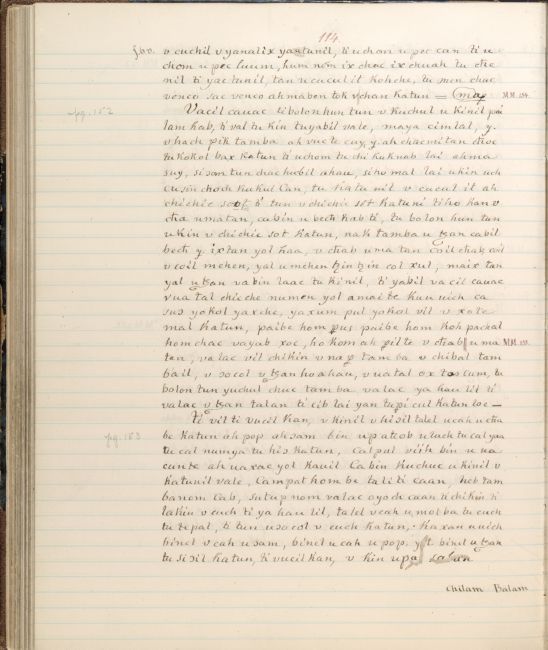 114
fbv. v cuchil v yanalix yaxtunil, ti uchom u pec can ti u
chom u pec luum, hum nom ix chac ix chuah tu che
nil ti yactunil, tan u cucul it kohche, tu men chac
venco sac venco ahmaben tok v chan katun = may MM. 154.
pg. 152 Vacil cauac ti bolon hun tun v kuchul u kinil pai
lam kab, ti val tu kin tu yabil vale, maya cimlal, y.
v hach pik tamba ah vucte cuy, y. ah chacmitan choc
tu kokol bax katun ti uchom tu chi kuknab lai ahma
suy, si som tun chac hubil ahau, sihomal lai u kin uch
cusin choch kukul Can, tu katu nil v cucul it ah
chichic soot ti tun v chichic sot katuni tiho kan v
cha u matan, cabin u bech kab ti, tu bolon hun tun
u kin v chichic sot katun, nak tamba u tzan cabil
bech y. ixtan yol haa, v chab uma tan
v coil mehen, yal u mehen tzintzin col xul, maix tan
yal u tzan vabin laac tu kinil, ti yabil vacil cauac
vua tal chicche numen yol amaite kun uich ca
sus yokol yaxche, yaxum pul yokol vil v xote
mal katun, paibe hom pus paibe hom koh pachal
hom chac vayab xoc, hokom ah pilte v chab uma MM. 155.
tan, valac vil chikin v nap tamba v chibal tam
bail, v socol v tzan hoahau, vuatal ox tascum, tu
bolon tun yuchul chuc tamba valac yahaulil ti
valac v tzan talan ti cib lai yan tu picul katun loe —
pg. 153 ti vil ti vucil kan, v kinil v hisil talel ucah u cha
be katun ah pop ah sam bin upateob u luch tu cal yaa
tu cal numya tu his katun, Calpul vich bin u ua
cunte ah uaxac yol kauil Cabin kuchuc u kinil v
katunil vale, Campat hom be taliti caan, heb tam
banom cab, sutup nom valac oyoch caan ti chikin ti
lakin v cuch ti yahaulil, talel v cah u molba tu cuch
tu tepal, ti tun u socol v cuch katun, kaxan uuich
binel v cah u sam, binel u cah u pop, y. t binel u tzan
tu sisil katun, ti vucil kan, v kin u pa
chilam Balam